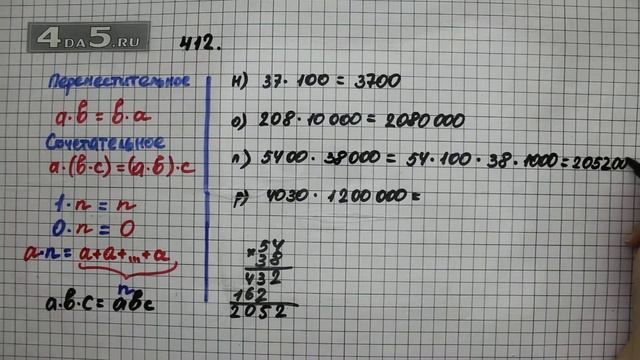 4DA5.RU
412.
Переместительное
a·b = b·a
Сочетательное
a·(b·c) = (a·b)·c
1·n = n
0·n = 0
a·n = a+a+...+a
n
a·b·c = abc
н) 37·100 = 3700
о) 208·10 000 = 2080 000
п) 5400·38000 = 54·100·38·1000 = 205200
р) 4030·1200 000 =
×54
38
432
162
2052